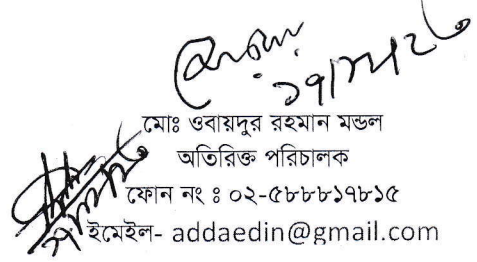 মোঃ ওবায়দুর রহমান মন্ডল
অতিরিক্ত পরিচালক
ফোন নং ঃ ০২-৫৮৮৮১৭৮১৫
ইমেইল- addaedin@gmail.com